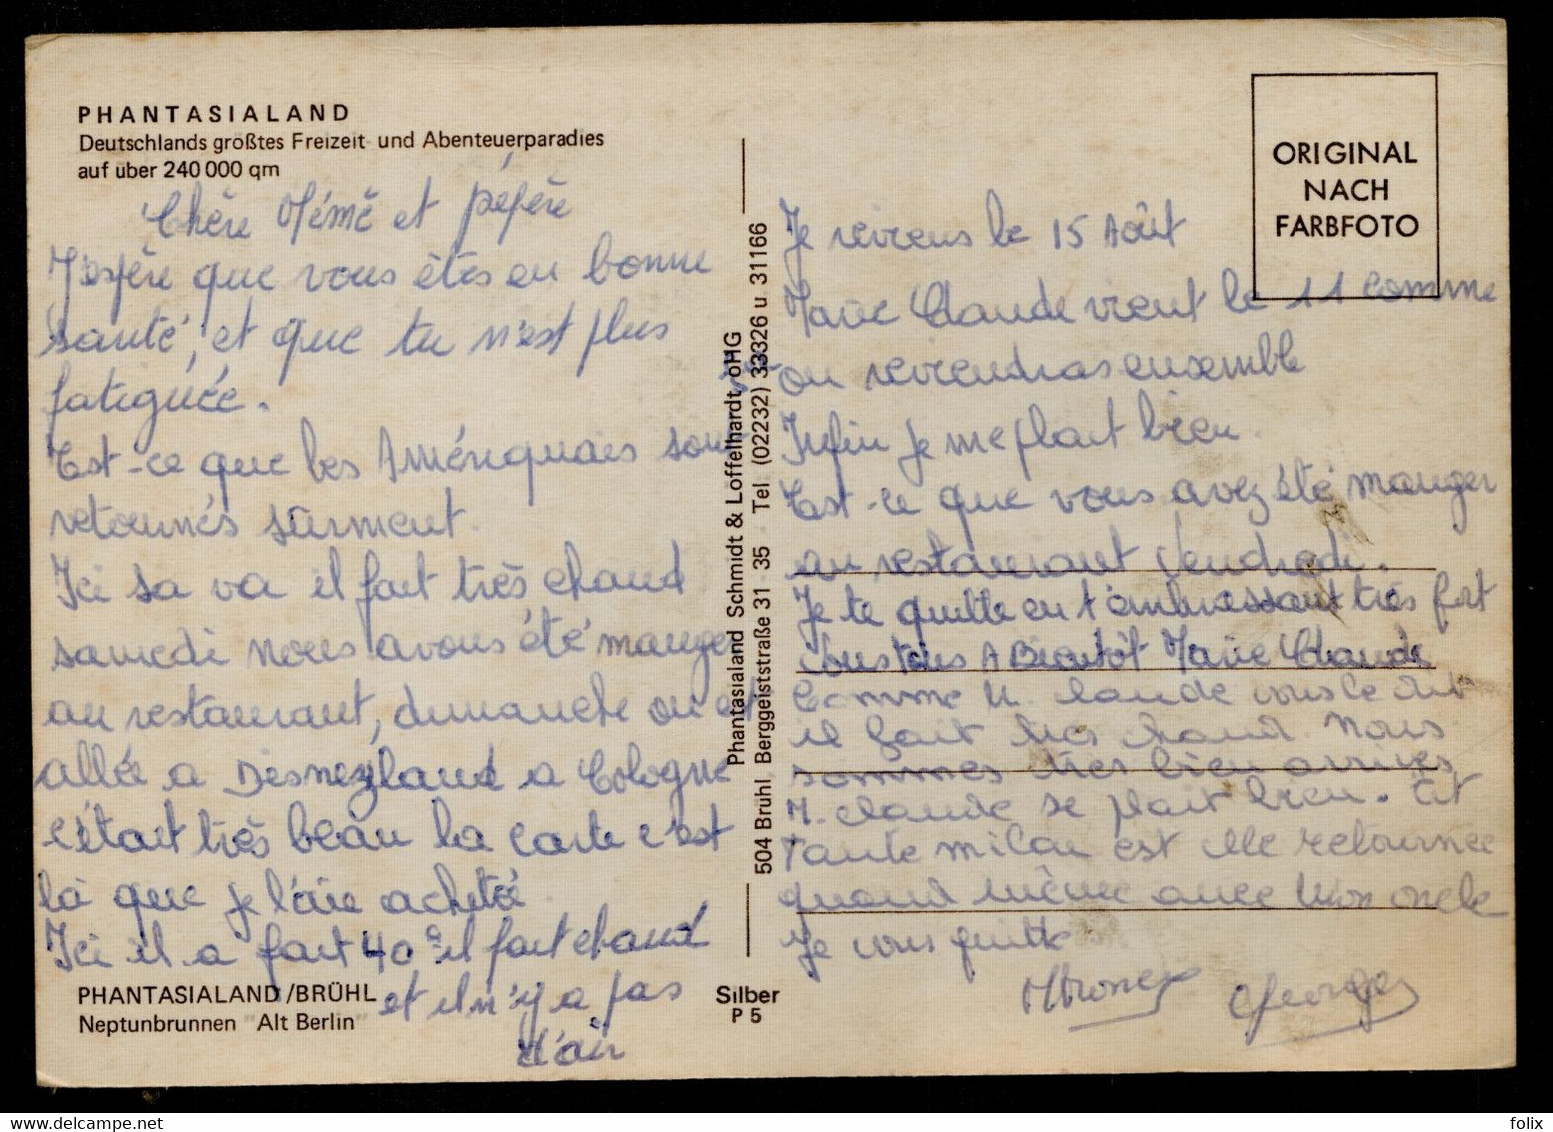 PHANTASIALAND
Deutschlands größtes Freizeit- und Abenteuerparadies
auf über 240 000 qm
Chère Mémé et péfère
J'espère que vous êtes en bonne
santé, et que tu n'est plus
fatiguée.
Est-ce que les Amériquais sont
retournés sûrment.
Ici sa va il fait très chaud
samedi nous avons été manger
au restaurant, dimanche on est
allée a Disneyland a Cologne
c'était très beau la carte c'est
là que je l'aie acheté
Ici il a fait 40° il fait chaud
et il n'y a pas
d'air
PHANTASIALAND/BRÜHL
Neptunbrunnen "Alt Berlin"
Phantasialand Schmidt & Löffelhardt, oHG
504 Brühl, Berggeiststraße 31-35 · Tel. (02232) 33326 u. 31166
Silber
P 5
ORIGINAL
NACH
FARBFOTO
Je reviens le 15 Août
Marie Claude vient le 11 comme
on reviendras ensemble
Infin je me plait bien.
Est-ce que vous avez été manger
au restaurant vendredi.
Je te quitte en t'embrassant très fort
tous A Bientôt Marie Claude
Comme M. Claude vous le dit
il fait très chaud. Nous
sommes très bien arrivés
M. Claude se plait bien. Et
Tante est elle retournee
quand même avec Mon oncle
Je vous quitte
Georges
folix